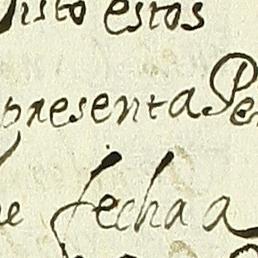 Visto estos
presenta Pe
he fecha a